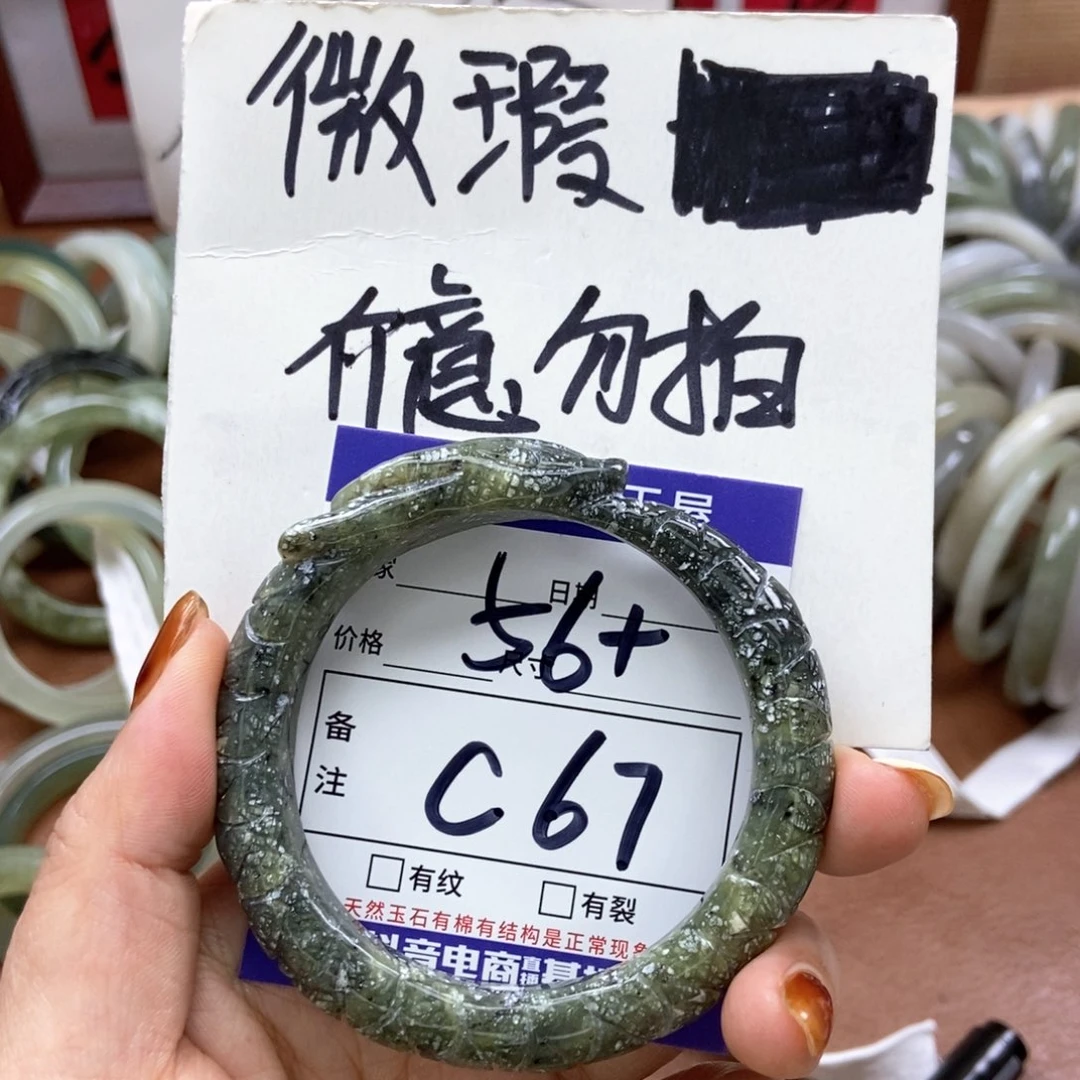 微瑕
介意勿拍
玉屋
家 日期
价格 尺寸
56+
备注
C67
有纹 有裂
天然玉石有棉有结构是正常现象
抖音电商直播基地